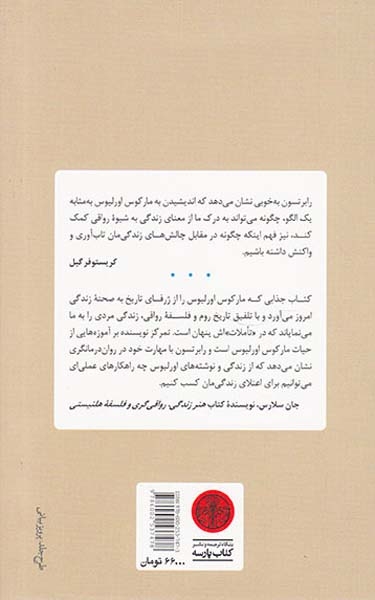 رابرتسون به‌خوبی نشان می‌دهد که اندیشیدن به مارکوس اورلیوس به‌مثابه
یک الگو، چگونه می‌تواند به درک ما از معنای زندگی به شیوهٔ رواقی کمک
کنـد، نیز فهم اینکه چگونه در مقابل چالش‌های زندگی‌مان تاب‌آوری و
واکنش داشته باشیم.
کریستوفر گیل
کتاب جذابی که مارکوس اورلیوس را از ژرفای تاریخ به صحنهٔ زندگی
امروز می‌آورد و با تلفیق تاریخ روم و فلسفهٔ رواقی، زندگی مردی را به ما
می‌نمایاند که در «تأملات»اش پنهان است. تمرکز نویسنده بر آموزه‌هایی از
حیات مارکوس اورلیوس است و رابرتسون با مهارت خود در روان‌درمانگری
نشان می‌دهد که از زندگی و نوشته‌های اورلیوس چه راهکارهای عملی‌ای
می‌توانیم برای اعتلای زندگی‌مان کسب کنیم.
جان سلارس، نویسندهٔ کتاب هنر زندگی، رواقی‌گری و فلسفهٔ هلنیستی
بنگاه ترجمه و نشر
کتاب پارسه
۶۶۰۰۰ تومان
طرح جلد: پرویز بیانی